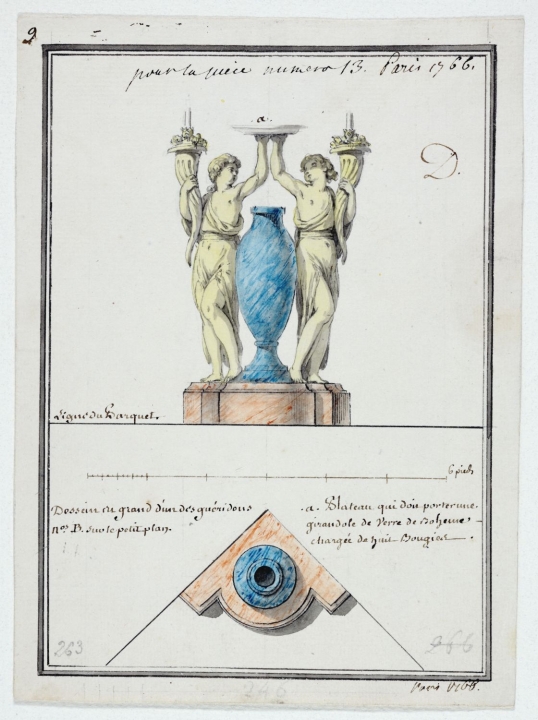 9
pour la pièce numero 13. Paris 1766.
a.
D.
Ligne du Parquet.
6 pieds
Dessein en grand d'un des guéridons
nos. D. sur le petit plan.
a. Plateau qui doit porter une
girandole de Verre de Boheme
chargée de huit Bougies.
263
966
Paris 1766.